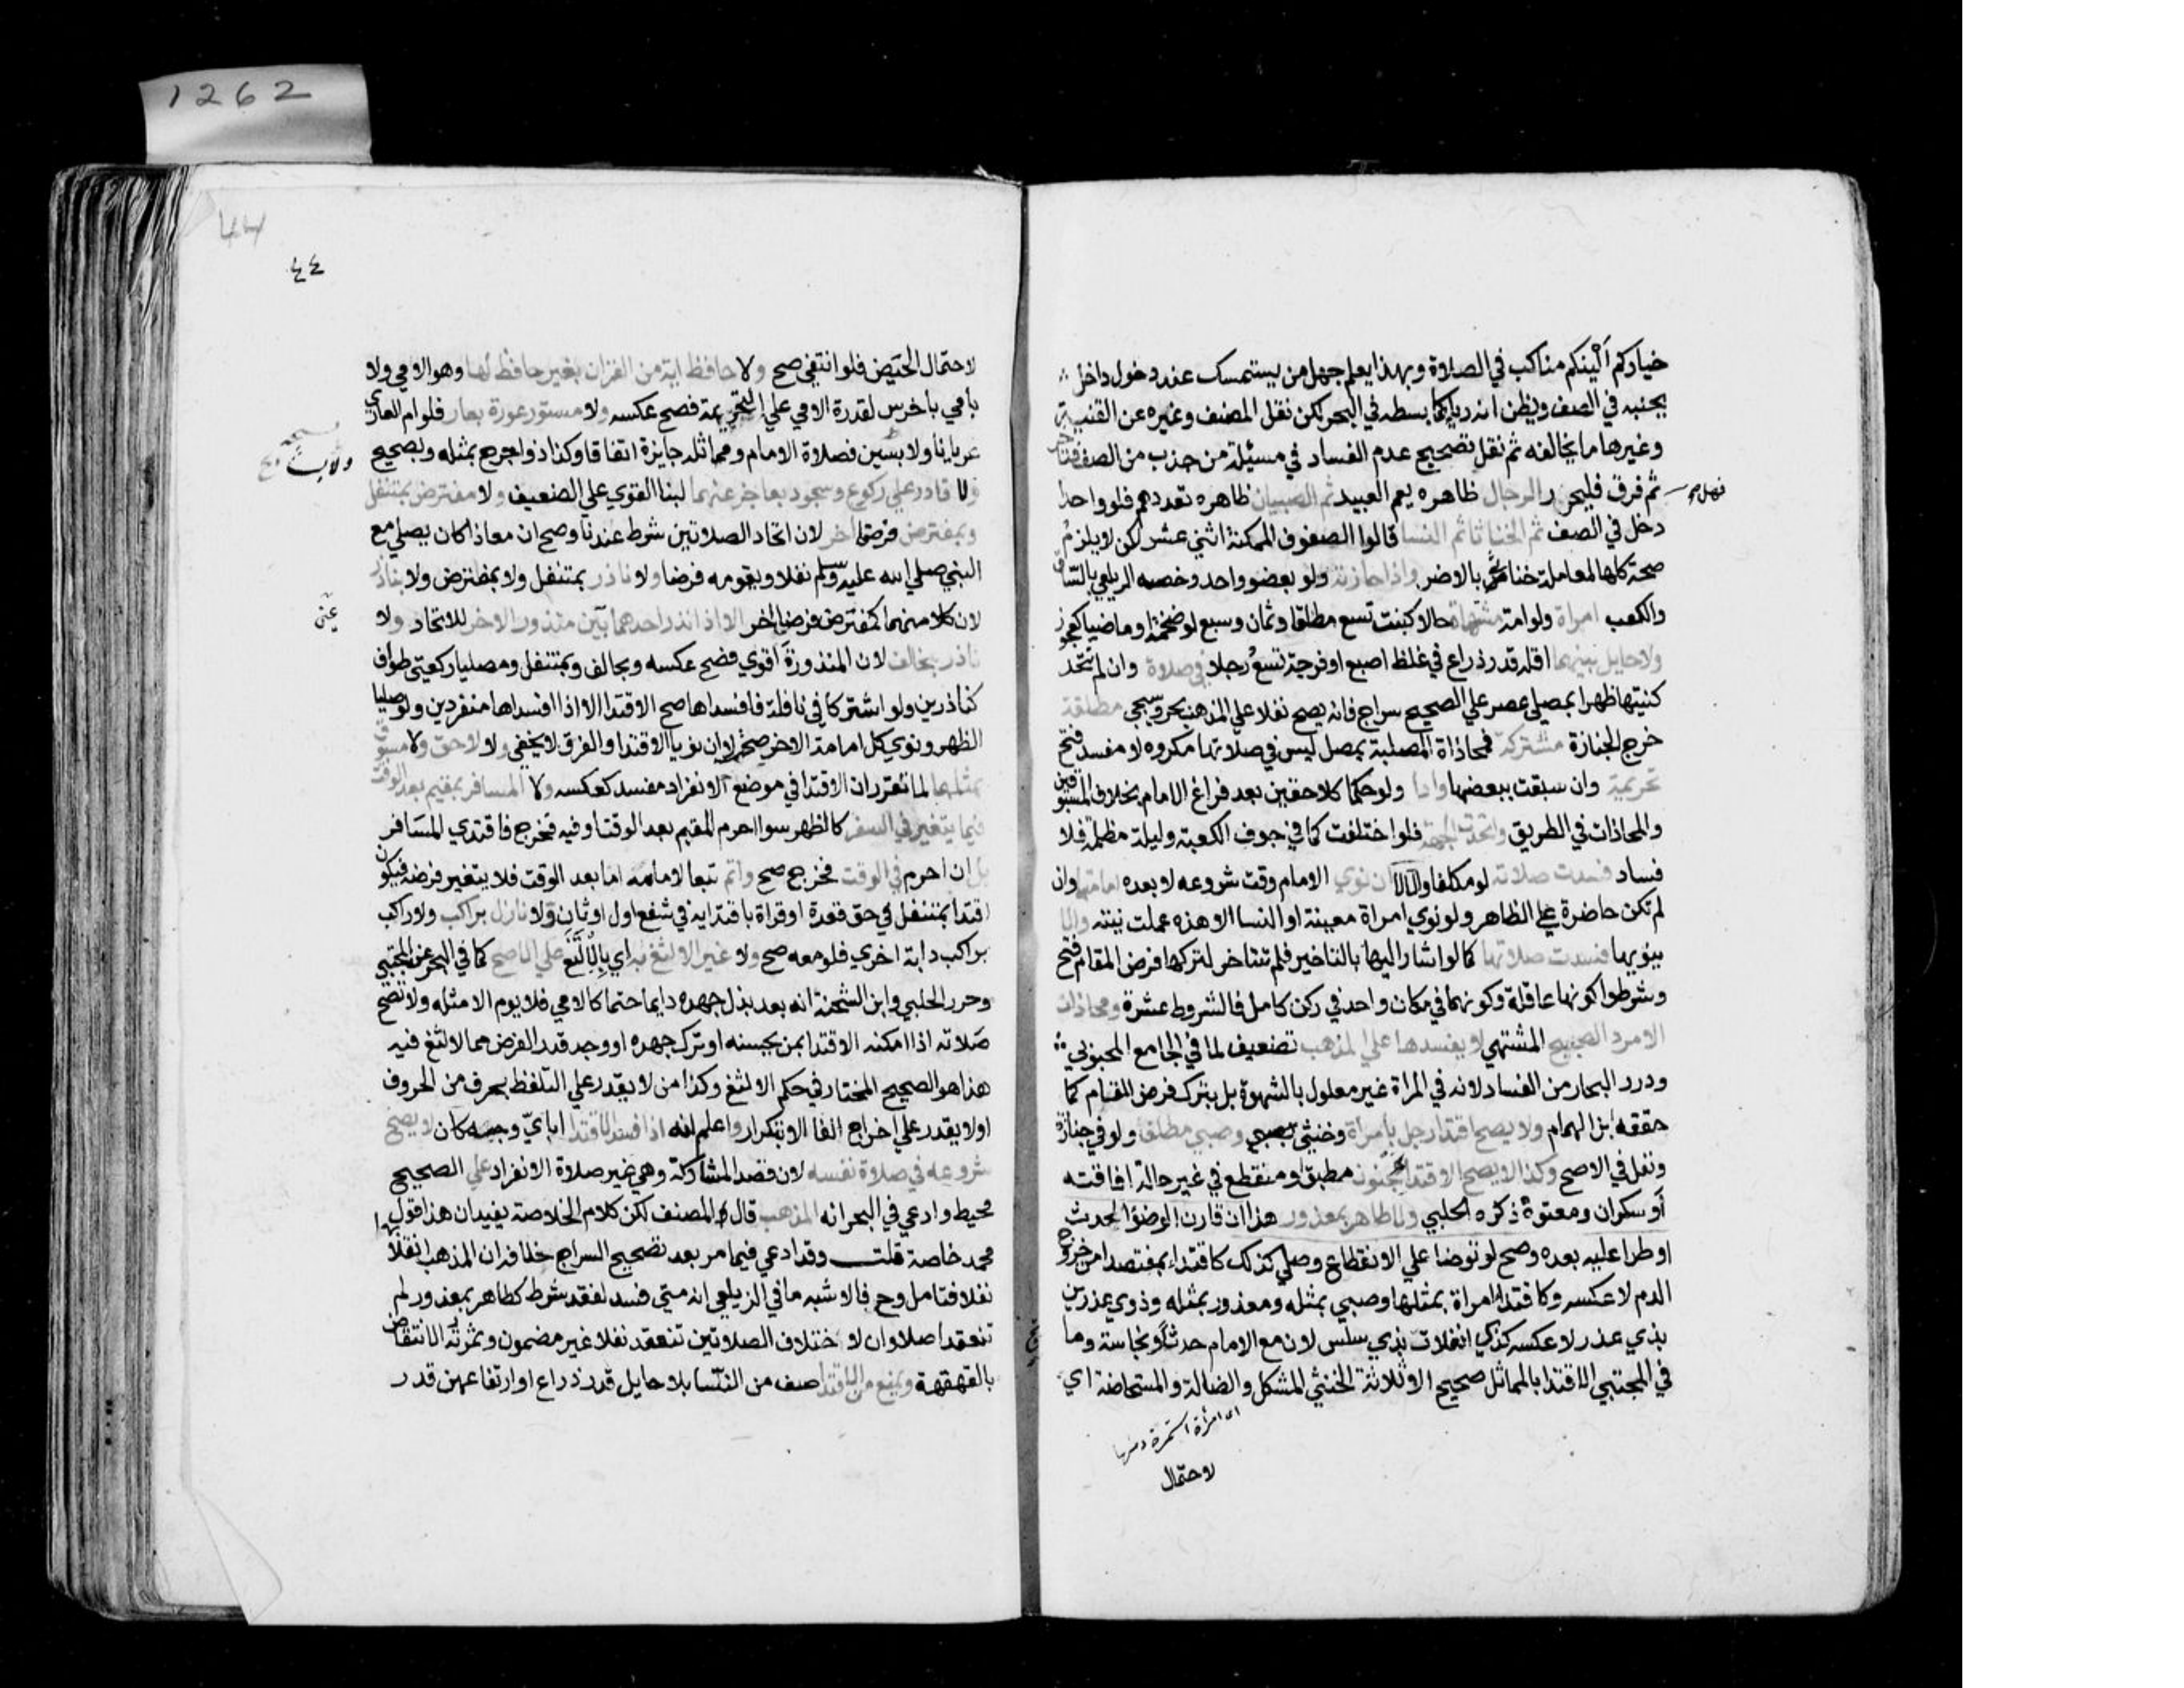 1262
خياركم ألينكم مناكب في الصلاة وبهذا يعلم جهل من يستمسك عند دخول داخل
بجنبه في الصف ويظن انه رياء كما بسطه في البحر لكن نقل المصنف وغيره عن القنية
وغيرها ما يخالفه ثم نقل تصحيح عدم الفساد في مسئلة من جذب من الصف فتأخر
ثم فرق فليحرر الرجال ظاهره يعم العبيد ثم الصبيان ظاهره تعددهم فلو واحدا
فهل
دخل في الصف ثم الخناثا ثم النسا قالوا الصفوف الممكنة اثني عشر لكن لا يلزم
صحة كلها لمعاملة خناثى بالاضر واذا حازته ولو بعضو واحد وخصه الزيلعي بالساق
والكعب امراة ولو امة مشتهاة حالا كبنت تسع مطلقا وثمان وسبع لو ضخمة او ماضيا كعجوز
ولا حايل بينهما اقله قدر ذراع في غلظ اصبع او فرجة تسع رجلا في صلاة وان لم تتحد
كنيتها ظهرا بمصلي عصر علي الصحيح سراج فانه يصح نفلا علي المذهب بحر وسيجي مطلقة
خرج الجنازة مشتركة فمحاذاة المصلية بمصل ليس في صلاتها مكروه لا مفسد فتح
تحريمة وان سبقت ببعضها وادا ولو حكما كلاحقين بعد فراغ الامام بخلاف المسبوقين
والمحاذات في الطريق واتحدت الجهة فلو اختلفت كما في جوف الكعبة وليلة مظلمة فلا
فساد فسدت صلاته لو مكلفا والا لا ان نوي الامام وقت شروعه لا بعده امامتها وان
لم تكن حاضرة علي الظاهر ولو نوي امراة معينة او النسا الا هذه عملت نيته والا
ينويها فسدت صلاتها كما لو اشار اليها بالتاخير فلم تتاخر لتركها فرض المقام فتح
وشرطوا كونها عاقلة وكونهما في مكان واحد في ركن كامل فالشروط عشرة ومحاذات
الامرد الصبيح المشتهي لا يفسدها علي المذهب تضعيف لما في الجامع المحبوبي
ودرر البحار من الفساد لانه في المراة غير معلول بالشهوة بل بترك فرض المقام كما
حققه ابن الهمام ولا يصح اقتدا رجل بامراة وخنثي وصبي مطلقا ولو في جنازة
ونفل في الاصح وكذا لا يصح الاقتدا بمجنون مطبق او منقطع في غير حالة افاقته
أو سكران ومعتوه ذكره الحلبي ولا طاهر بمعذور هذا ان قارن الوضوء الحدث
او طرا عليه بعده وصح لو توضا علي الانقطاع وصلي كذلك كاقتداء بمفتصد امن خروج
الدم لا عكسه وكاقتداء امراة بمثلها وصبي بمثله ومعذور بمثله وذوي عذرين
بذي عذر لا عكسه كذي انفلات بذي سلس لان مع الامام حدثا ونجاسة وما
في المجتبي الاقتدا بالمماثل صحيح الا ثلاثة الخنثي المشكل والضالة والمستحاضة اي
اي امرأة استمرة دمها
لاحتمال
44
٤٤
لاحتمال الحيض فلو انتفي صح ولا حافظ اية من القران بغير حافظ لها وهو الامي ولا
بأمي باخرس لقدرة الامي علي التحريمة فصح عكسه ولا مستور عورة بعار فلو ام العاري
عريانا ولابسين فصلاة الامام ومماثله جايزة اتفاقا وكذا ذو اجرح بمثله وبصحيح
ولا قادر علي ركوع وسجود بعاجز عنهما لبنا القوي علي الضعيف ولا مفترض بمتنفل
وبمفترض فرضا اخر لان اتحاد الصلاتين شرط عندنا وصح ان معاذا كان يصلي مع
النبي صلي الله عليه وسلم نفلا وبقومه فرضا ولا ناذر بمتنفل ولا بمفترض ولا بناذر
لان كلا منهما كمفترض فرضا اخر الا اذا نذر احدهما بين منذور الاخر للاتحاد ولا
عين
ناذر بحالف لان المنذورة اقوي فصح عكسه وبحالف وبمتنفل ومصليا ركعتي طواف
كناذرين ولو اشتركا في نافلة فافسداها صح الاقتدا الا اذا افسداها منفردين ولو صليا
الظهر ونوي كل امامة الاخر صحت لا ان نويا الاقتدا والفرق لا يخفي ولا لاحق ولا مسبوق
بمثلهما لما تقرر ان الاقتدا في موضع الانفراد مفسد كعكسه ولا المسافر بمقيم بعد الوقت
فيما يتغير في السفر كالظهر سوا احرم المقيم بعد الوقت او فيه فخرج فاقتدي المسافر
بل ان احرم في الوقت فخرج صح واتم تبعا لامامه اما بعد الوقت فلا يتغير فرضه فيكون
اقتدا بمتنفل في حق قعدة او قراة باقتدايه في شفع اول او ثان ولا نازل براكب ولا راكب
براكب دابة اخري فلو معه صح ولا غير الالثغ به اي بالالثغ علي الاصح كما في البحر عن المجتبي
وحرر الحلبي وابن الشحنة انه بعد بذل جهده دايما حتما كالامي فلا يوم الا مثله ولا تصح
صلاته اذا امكنه الاقتدا بمن يحسنه او ترك جهده او وجد قدر الفرض مما لا لثغ فيه
هذا هو الصحيح المختار في حكم الالثغ وكذا من لا يقدر علي التلفظ بحرف من الحروف
او لا يقدر علي اخراج الفا الا بتكرار واعلم انه اذا فسد الاقتدا باي وجه كان لا يصح
شروعه في صلاة نفسه لان قصد المشاركة وهي غير صلاة الانفراد علي الصحيح
محيط وادعي في البحر انه المذهب قال المصنف لكن كلام الخلاصة يفيد ان هذا قول
محمد خاصة قلت وقد ادعي فيما مر بعد تصحيح السراج خلافه ان المذهب انقلابها
نفلا فتامل وح فالاشبه ما في الزيلعي انه متي فسد لفقد شرط كطاهر بمعذور لم
تنعقد اصلا وان لاختلاف الصلاتين تنعقد نفلا غير مضمون وثمرته الانتقاض
بالقهقهة ويمنع من الاقتدا صف من النسا بلا حايل قدر ذراع او ارتفاعهن قدر